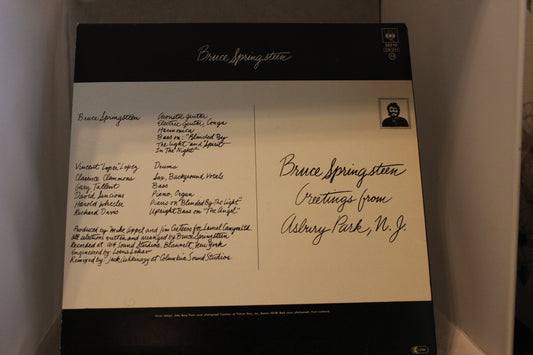 Bruce Springsteen
CBS
Bruce Springsteen
Acoustic Guitar
Electric Guitar, Conga
Harmonica
Bass on: "Blinded By
The Light" and "Spirit
In The Night"
Vincent "Loper" Lopez Drums
Clarence Clemmons Sax, Background Vocals
Gary Tallent Bass
David Sancious Piano, Organ
Harold Wheeler Piano on "Blinded By The Light"
Richard Davis Upright Bass on "The Angel"
Produced by: Mike Appel and Jim Cretecos for Laurel Canyon Ltd
All selections written and arranged by Bruce Springsteen
Recorded at: 914 Sound Studios, Blauvelt, New York
Engineered by: Louis Lahav
Remixed by: Jack Ashkinazy at Columbia Sound Studios
Bruce Springsteen
Greetings from
Asbury Park, N.J.